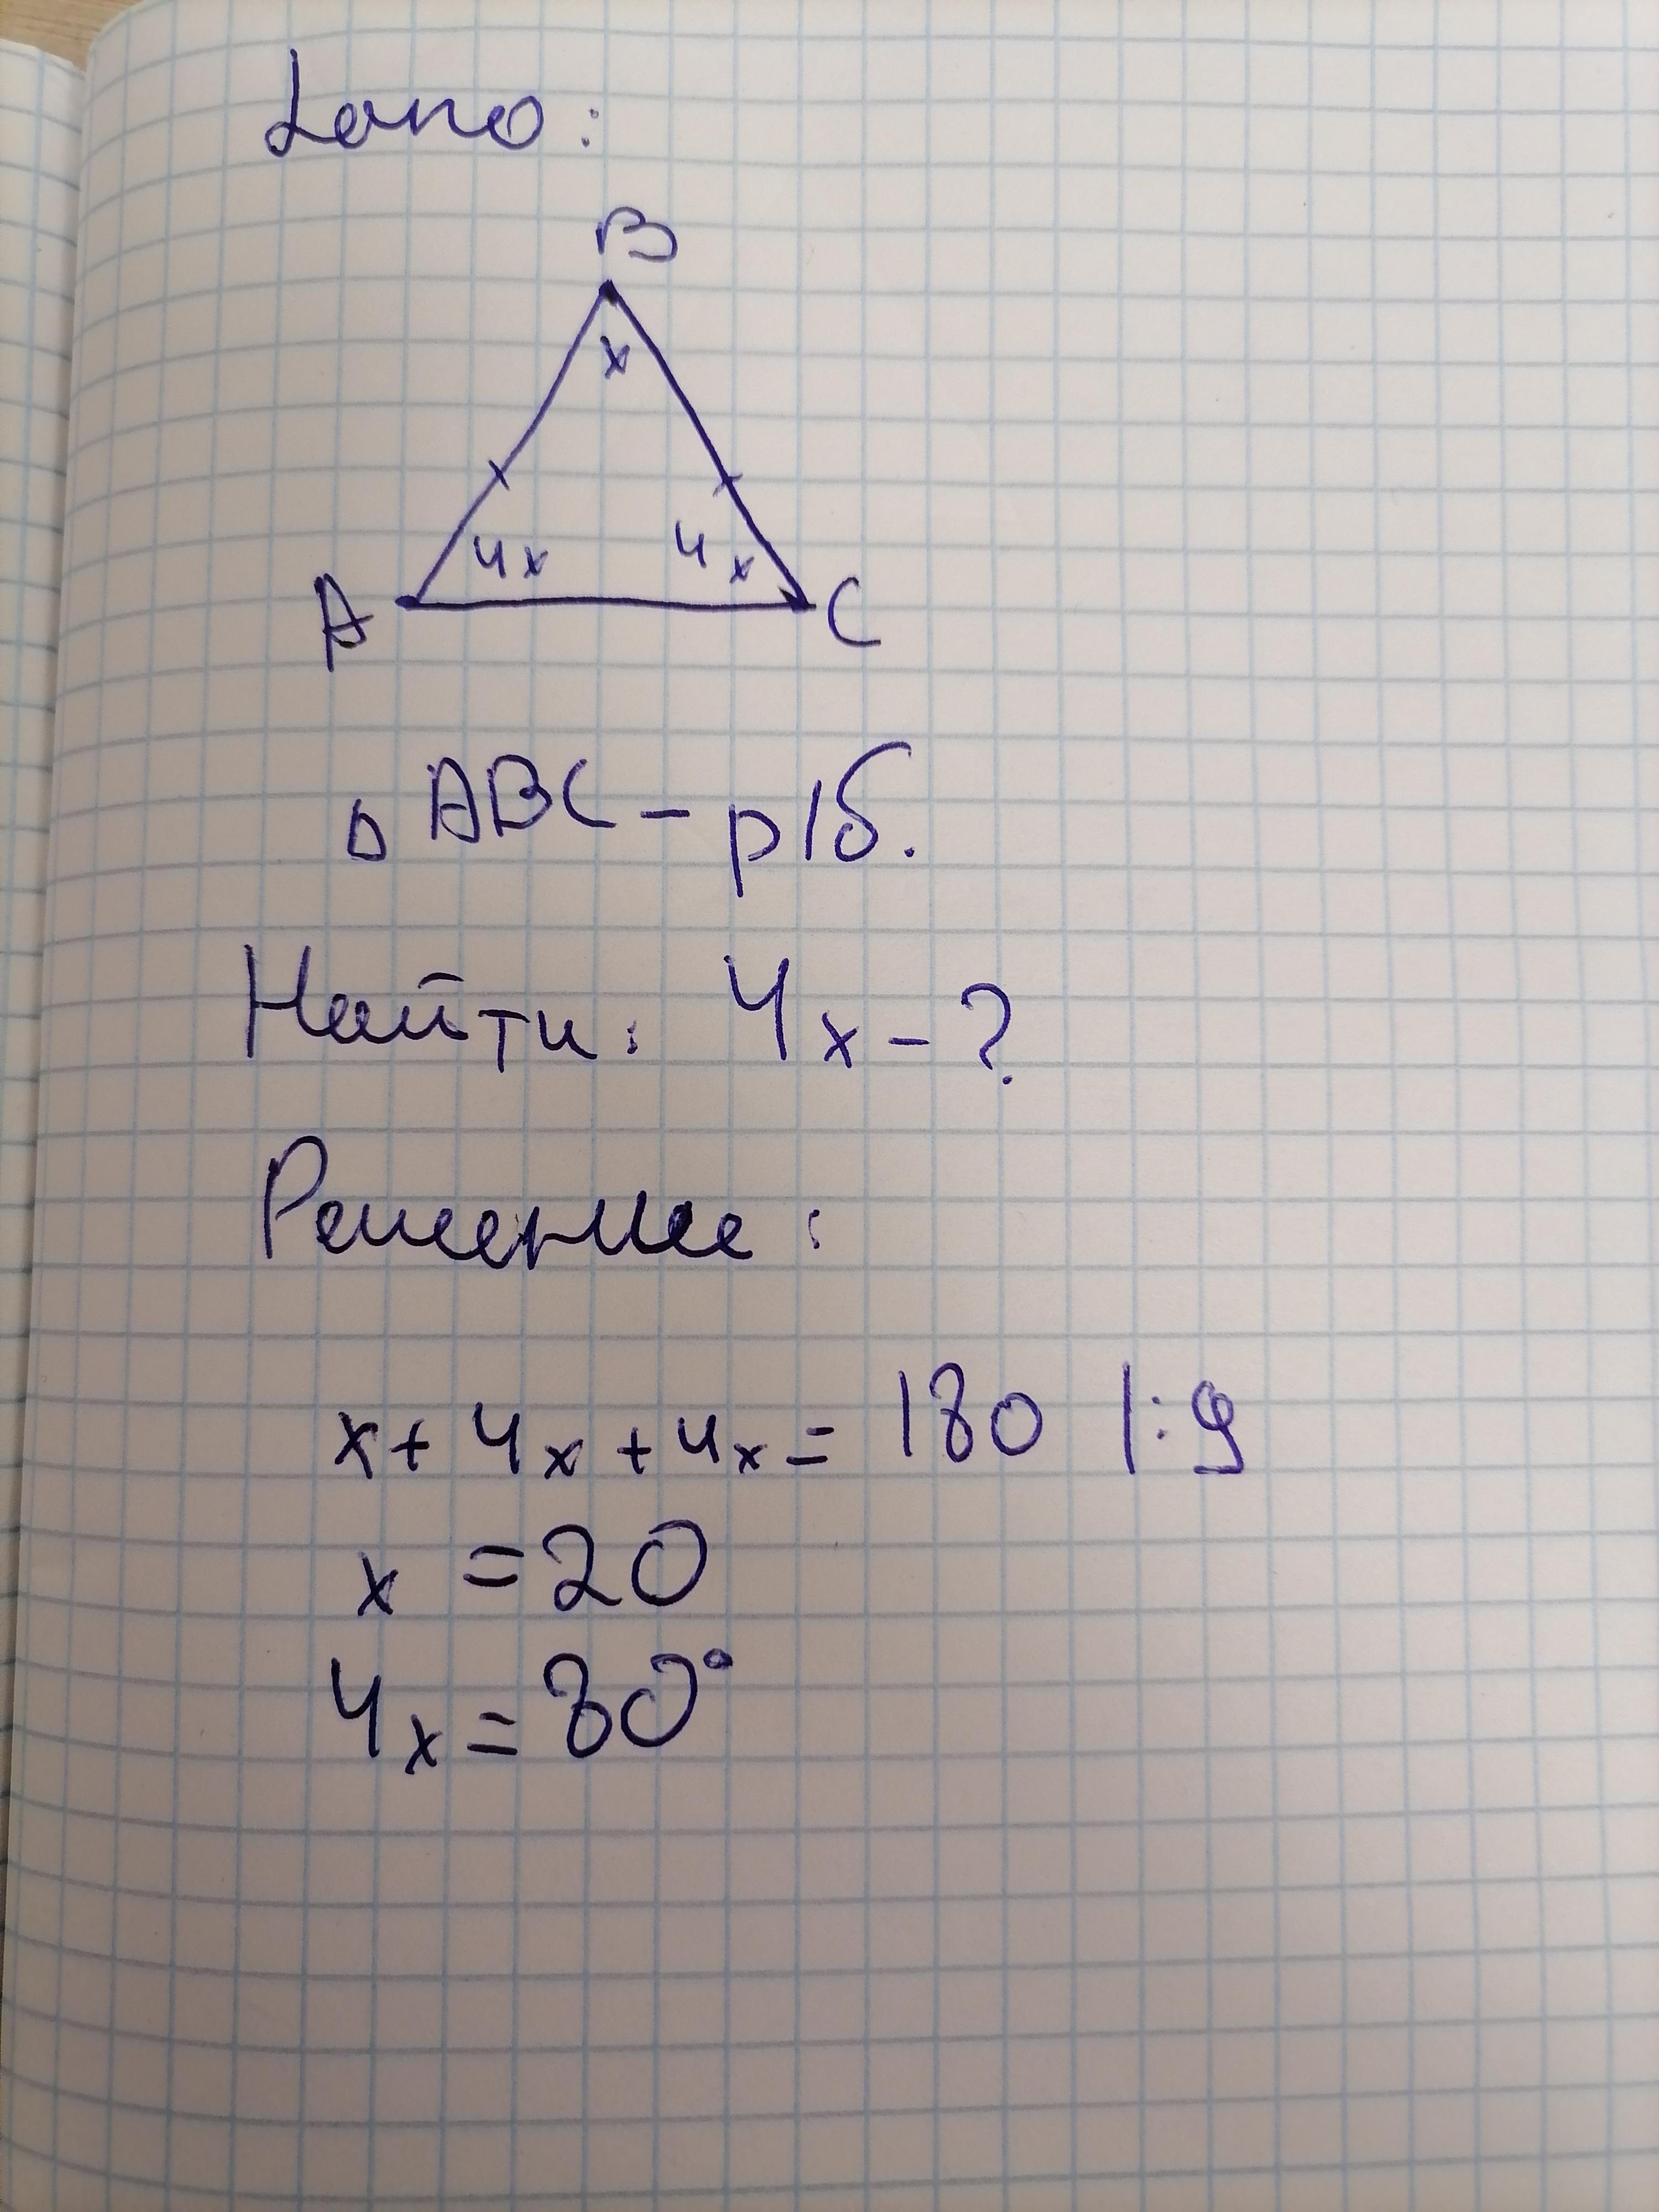 Дано:
B
x
4x 4x
A C
△ABC – р/б.
Найти: 4x – ?
Решение:
x + 4x + 4x = 180 |:9
x = 20
4x = 80°